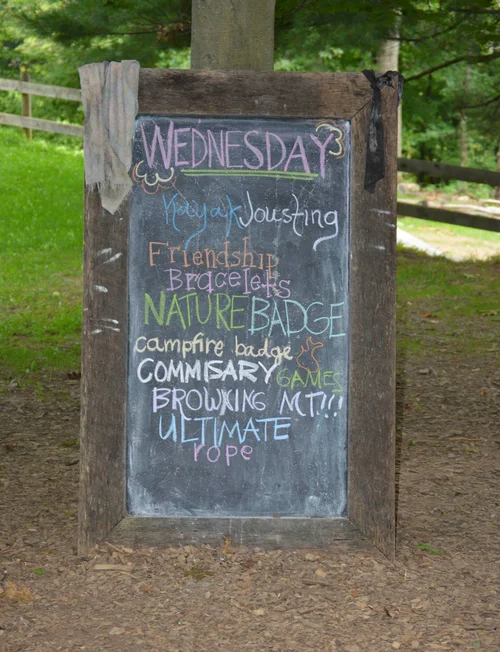 WEDNESDAY
Kayak Jousting
Friendship
Bracelets
NATURE BADGE
campfire badge
COMMISARY GAMES
BROWNING MT!!!
ULTIMATE
rope